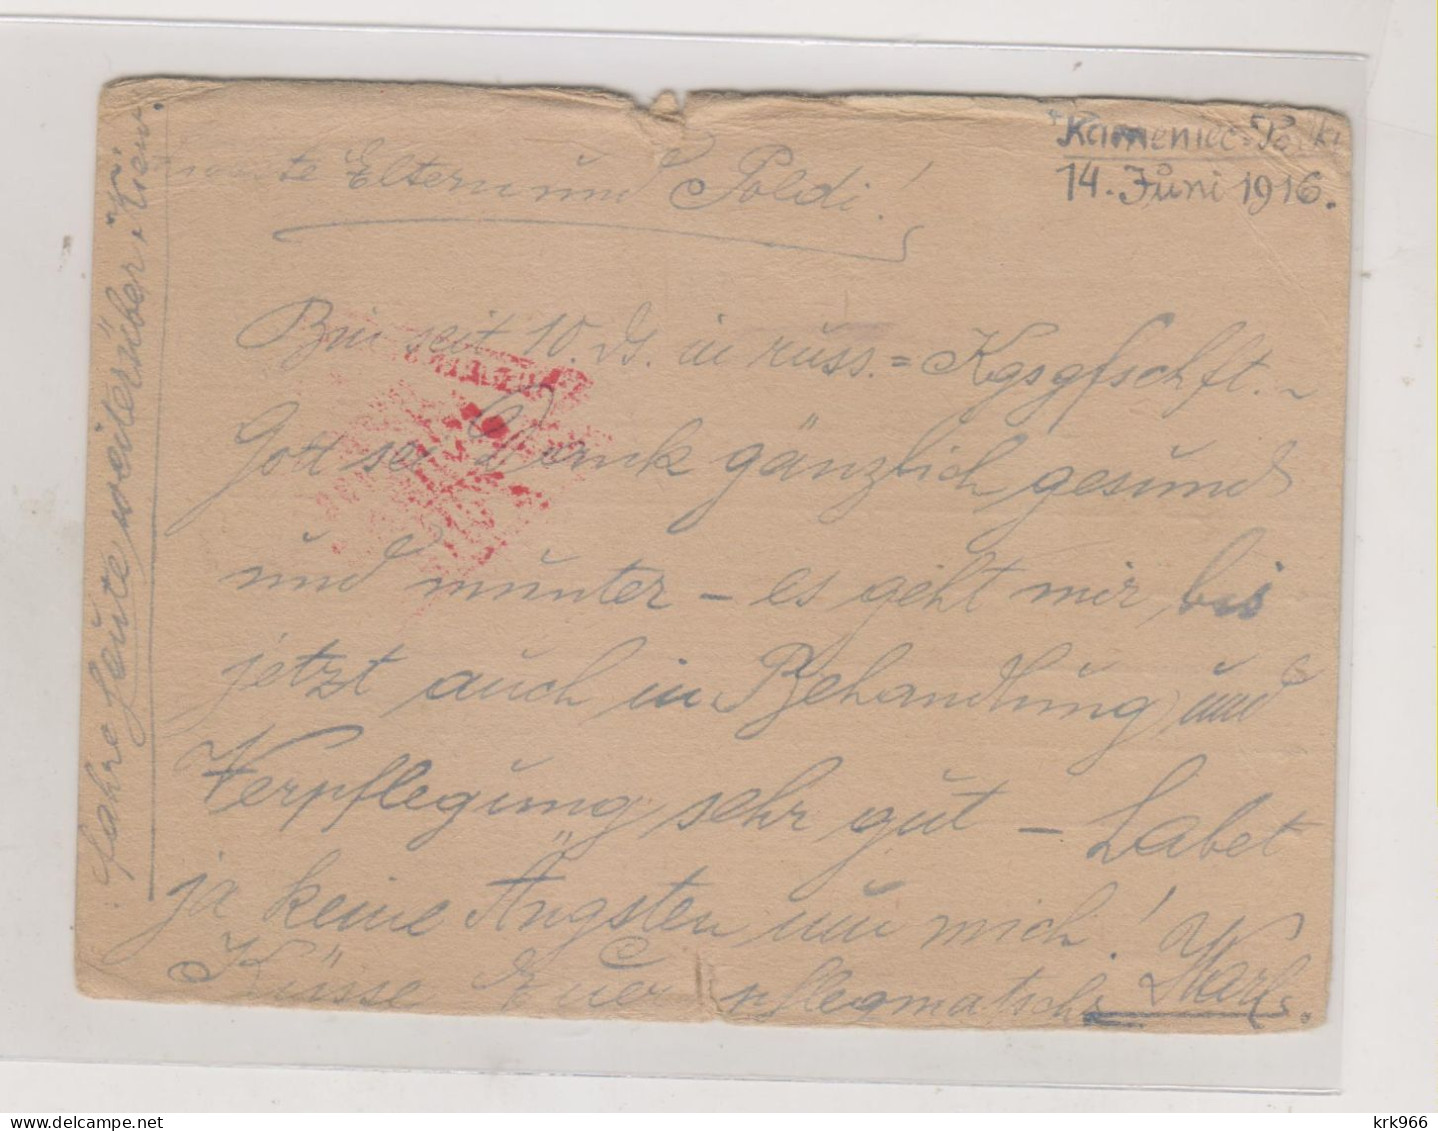 Kameniec-Po
14. Juni 1916.
Eltern und Poldi!
Bin seit 10. d. in russ.=Kgsgfschft. -
Gott sei Dank gänzlich gesund
und munter - es geht mir bis
jetzt auch in Behandlung und
Verpflegung sehr gut - Habet
ja keine Ängsten um mich!
Küsse Euer pflegmatsch. Karl.
fahre heute weiter über Kiew.
krk966